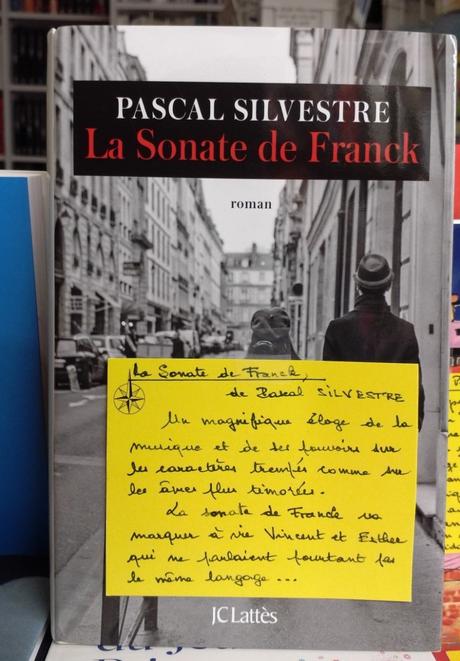 PASCAL SILVESTRE
La Sonate de Franck
roman
La Sonate de Franck,
de Pascal SILVESTRE
Un magnifique éloge de la
musique et de ses pouvoirs sur
les caractères trempés comme sur
les âmes plus timorées.
La sonate de Franck va
marquer à vie Vincent et Esther
qui ne parlaient pourtant pas
le même langage...
JC Lattès